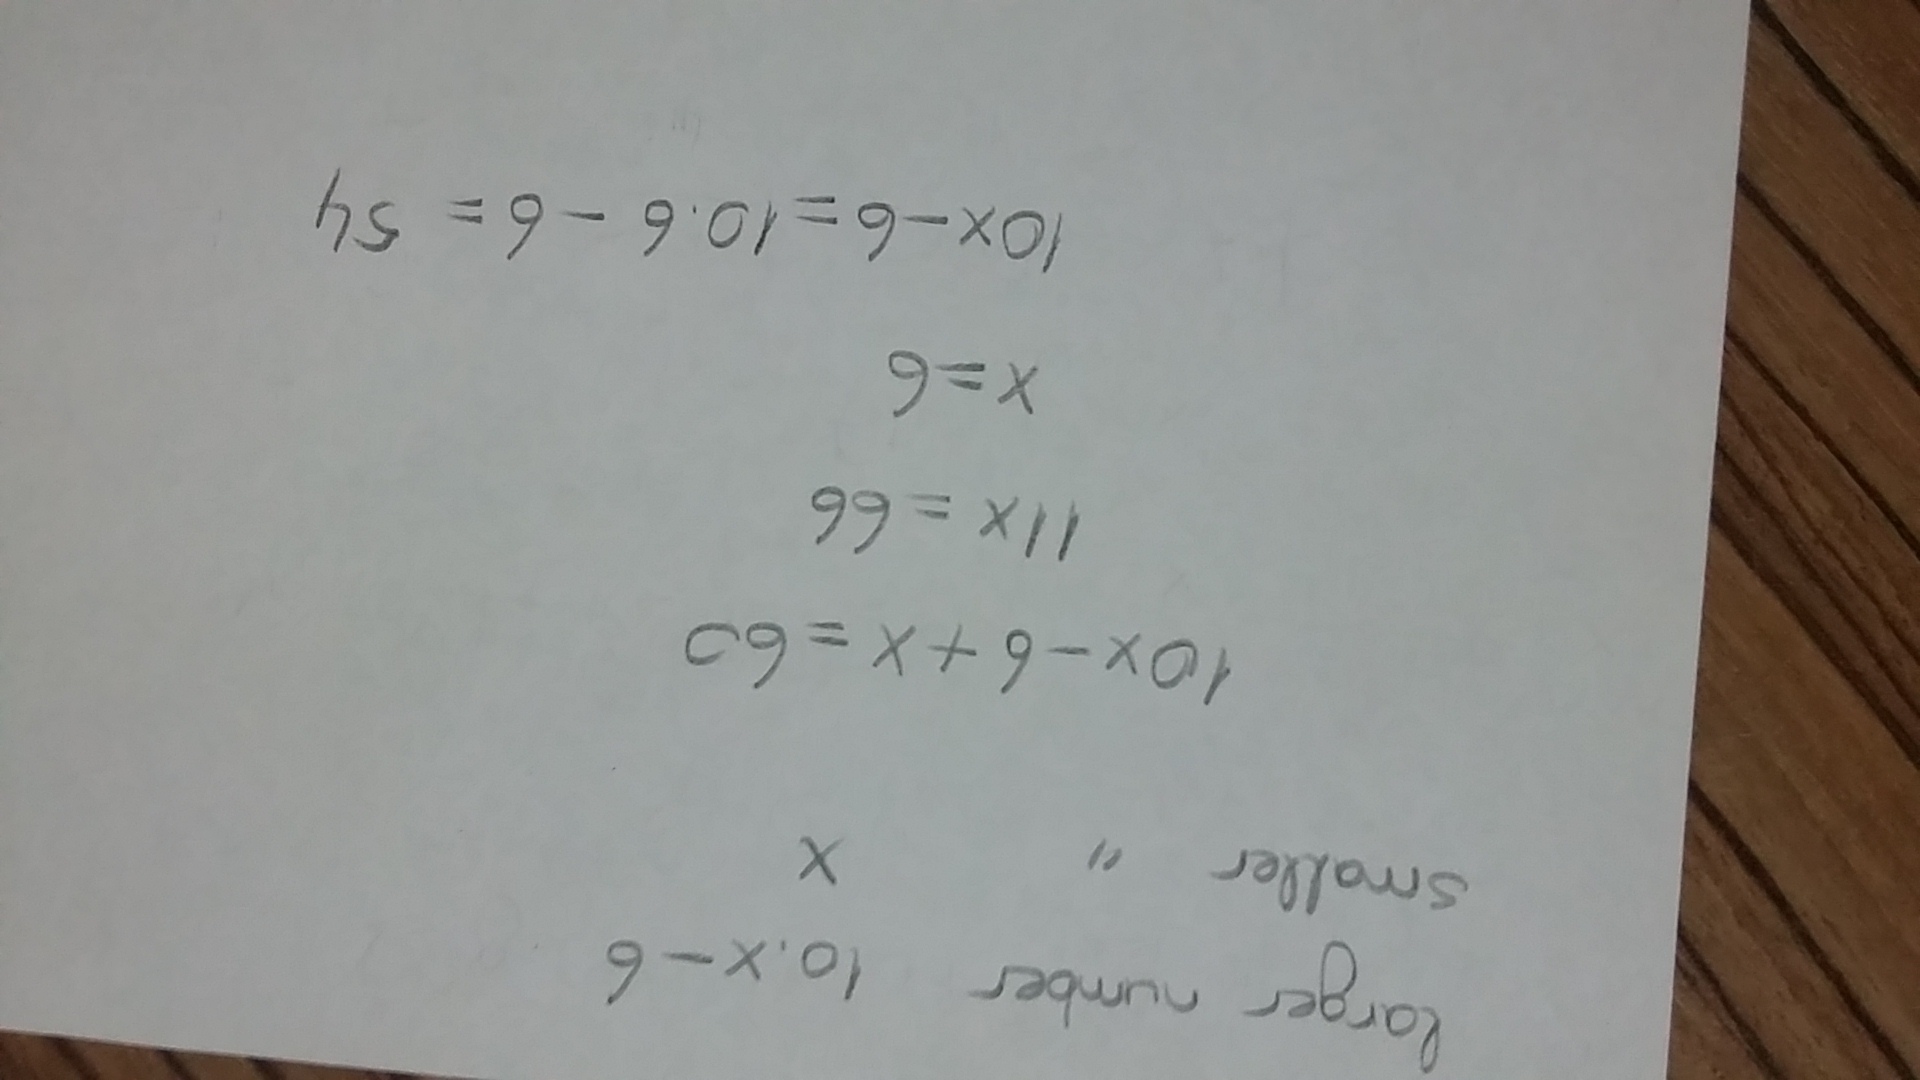 larger number 10.x-6
smaller " x
10x-6+x=60
11x=66
x=6
10x-6=10.6-6=54